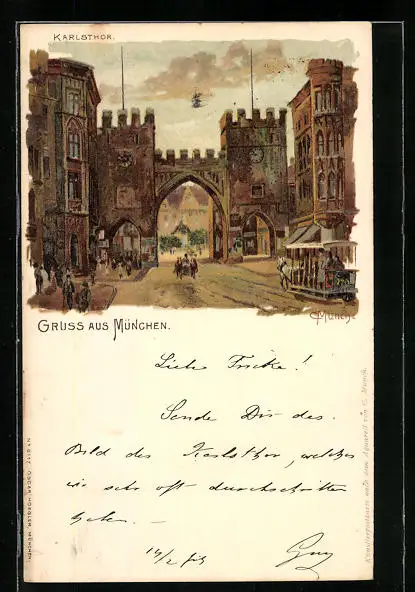 KARLSTHOR.
C Münch
GRUSS AUS MÜNCHEN.
Liebe Fricke!
Sende Dir das
Bild des Karlsthor, welches
wir sehr oft durchschritten
haben. —
14/2
Künstlerpostkarte nach dem Aquarell von C. Münch.
No 8117 OSCAR HOESSLER, MÜNCHEN